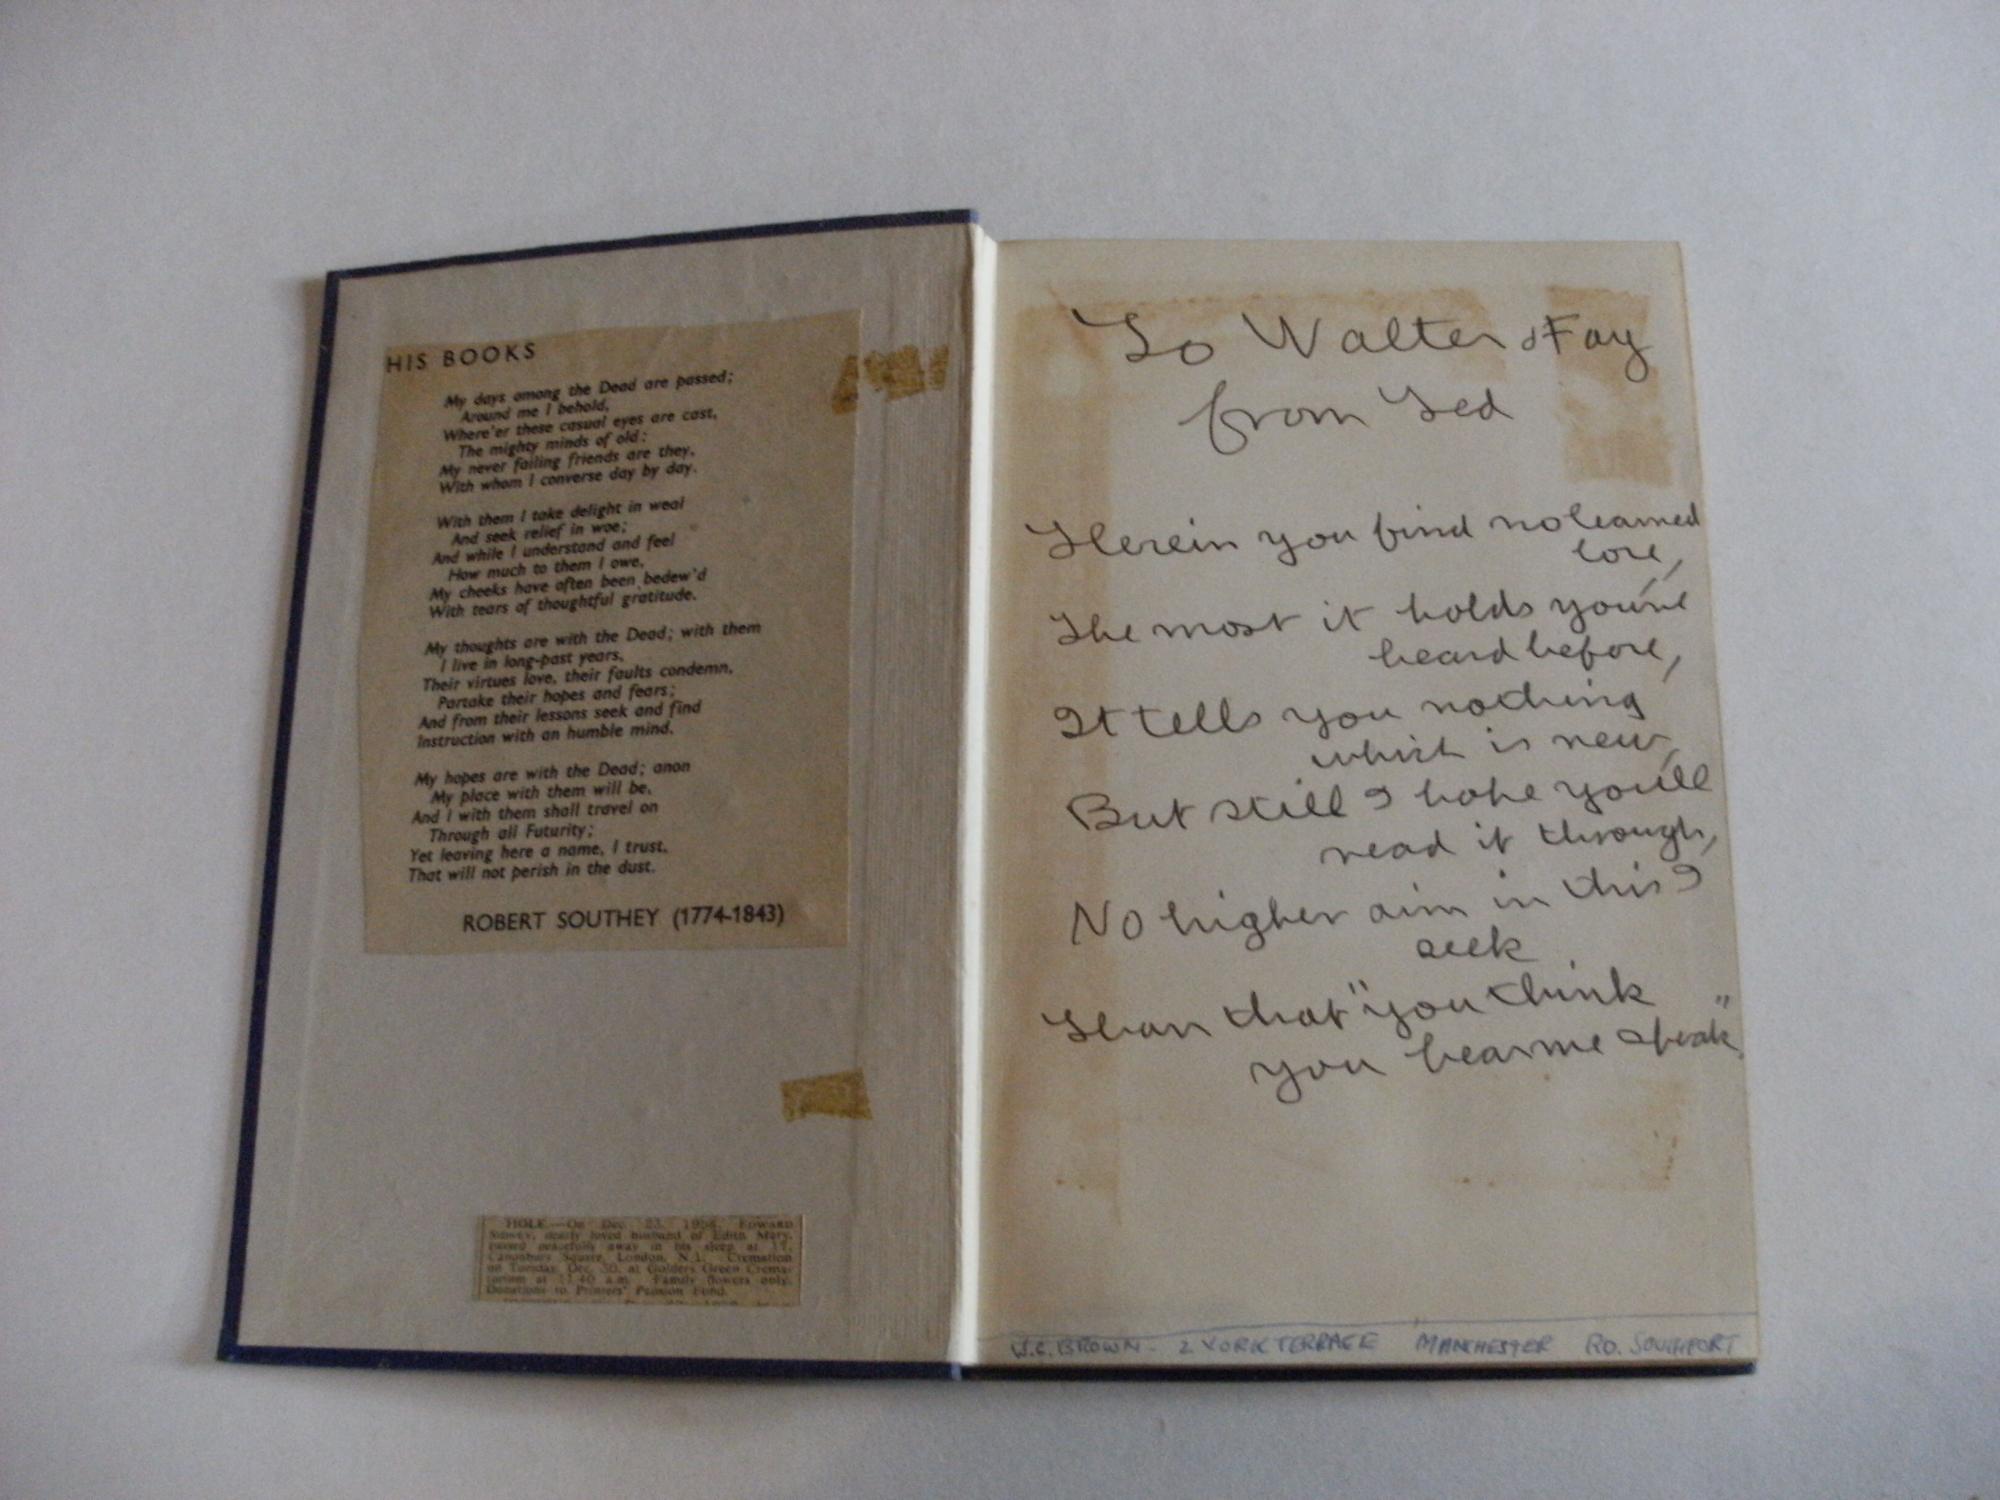 HIS BOOKS
My days among the Dead are passed;
Around me I behold,
Where'er these casual eyes are cast,
The mighty minds of old;
My never failing friends are they,
With whom I converse day by day.
With them I take delight in weal
And seek relief in woe;
And while I understand and feel
How much to them I owe,
My cheeks have often been bedew'd
With tears of thoughtful gratitude.
My thoughts are with the Dead; with them
I live in long-past years,
Their virtues love, their faults condemn,
Partake their hopes and fears;
And from their lessons seek and find
Instruction with an humble mind.
My hopes are with the Dead; anon
My place with them will be,
And I with them shall travel on
Through all Futurity;
Yet leaving here a name, I trust,
That will not perish in the dust.
ROBERT SOUTHEY (1774-1843)
HOLE.—On Dec. 23, 1958, EDWARD
SIDNEY, dearly loved husband of Edith Mary,
passed peacefully away in his sleep at 17,
Canonbury Square, London, N.1. Cremation
on Tuesday, Dec. 30, at Golders Green Crema-
torium at 11.40 a.m. Family flowers only.
Donations to Printers' Pension Fund.
To Walter & Fay
from Ted
Herein you find no learned
lore,
The most it holds you've
heard before,
It tells you nothing
which is new,
But still I hope you'll
read it through,
No higher aim in this I
seek
Than that "you think
you hear me speak"
W.C. BROWN - 2 YORK TERRACE MANCHESTER RD. SOUTHPORT